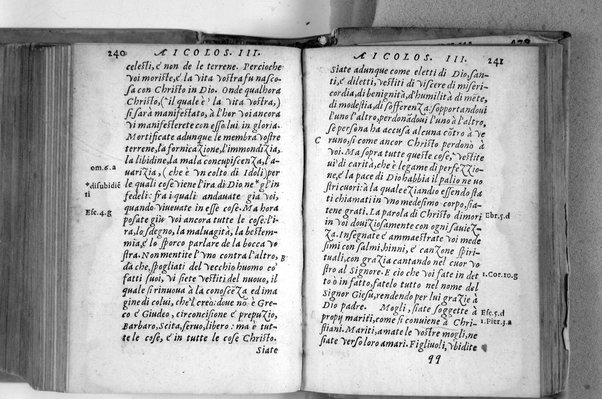 240 A I COLOS. III.
celesti, e non de le terrene. Percioche
voi moriste, e la vita vostra fu nasco
sa con Christo in Dio. Onde qualhora
Christo, (il quale e' la vita vostra,)
si sarà manifestato, a l'hor voi ancora
vi manifesterete con esso lui in gloria.
Mortificate adunque le membra vostre
terrene, la fornicazione, l'immondizia,
la libidine, la mala concupiscenza, l'a-
om.6.a
uarizia, (che e' vn colto di Idoli) per
*disubidiē
ti
le quali cose viene l'ira di Dio ne* gl'in
fedeli: fra i quali andauate gia voi,
quando viueuate in esse cose. Ma hora
Efe.4.g
posate giu voi ancora tutte le cose: l'i-
ra, lo sdegno, la maluagità, la bestem-
mia, e lo sporco parlare de la bocca vo
stra. Non mentite l'vno contra l'altro, B
da che, spogliati del vecchio huomo co'
fatti suoi, vi siete vestiti del nuouo, il
quale si rinuoua à la conoscēza ed ima
gine di colui, che'l creò: doue nō è Gre-
co e Giudeo, circoncisione e prepuzio,
Barbaro, Scita, seruo, libero: ma è tut-
te le cose, e in tutte le cose Christo.
Siate
A I COLOS. III. 241
Siate adunque come eletti di Dio, san-
ti, e diletti, vestiti di viscere di miseri-
cordia, di benignità, d'humilità di mēte,
di modestia, di sofferenza: sopportandoui
l'uno l'altro, perdonādoui l'uno à l'altro,
se persona ha accusa alcuna cōtro à ve
C runo, si come ancor Christo perdonò à
voi. Ma sopra tutte queste cose, *vestite
ui di carità, che è legame di perfezzio-
ne, e la pace di Dio habbia il palio ne uo
stri cuori: à la quale eziandio essendo sta
ti chiamati in vno medesimo corpo, sia-
tene grati. La parola di Christo dimori
Ebr.5.d
in voi douiziosamente con ogni sauiez-
za. Insegnate e ammaestrate voi mede
simi con salmi, hinni, e canzone spiri-
tuali, con grazia cantando nel cuor vo
stro al Signore. E cio che voi fate in det
1.Cor.10.g
to ò in fatto, fatelo tutto nel nome del
Signor Giesu, rendendo per lui grazie à
Dio padre. Mogli, siate soggette à
Efe.5.d
propy mariti, come si conuiene à Chri-
1.Pier.3.a
stiani. Mariti, amate le vostre mogli, ne
siate verso loro amari. Figliuoli, vbidite
qq